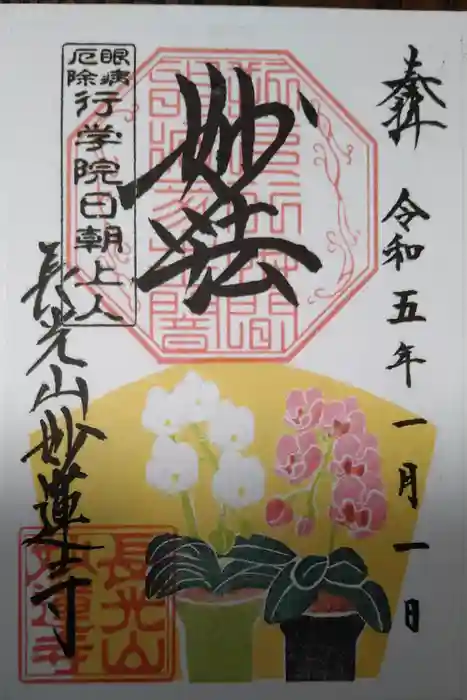 奉拝
令和五年一月一日
妙法
眼病
厄除
行学院日朝上人
長光山妙蓮寺
長光山
妙蓮寺